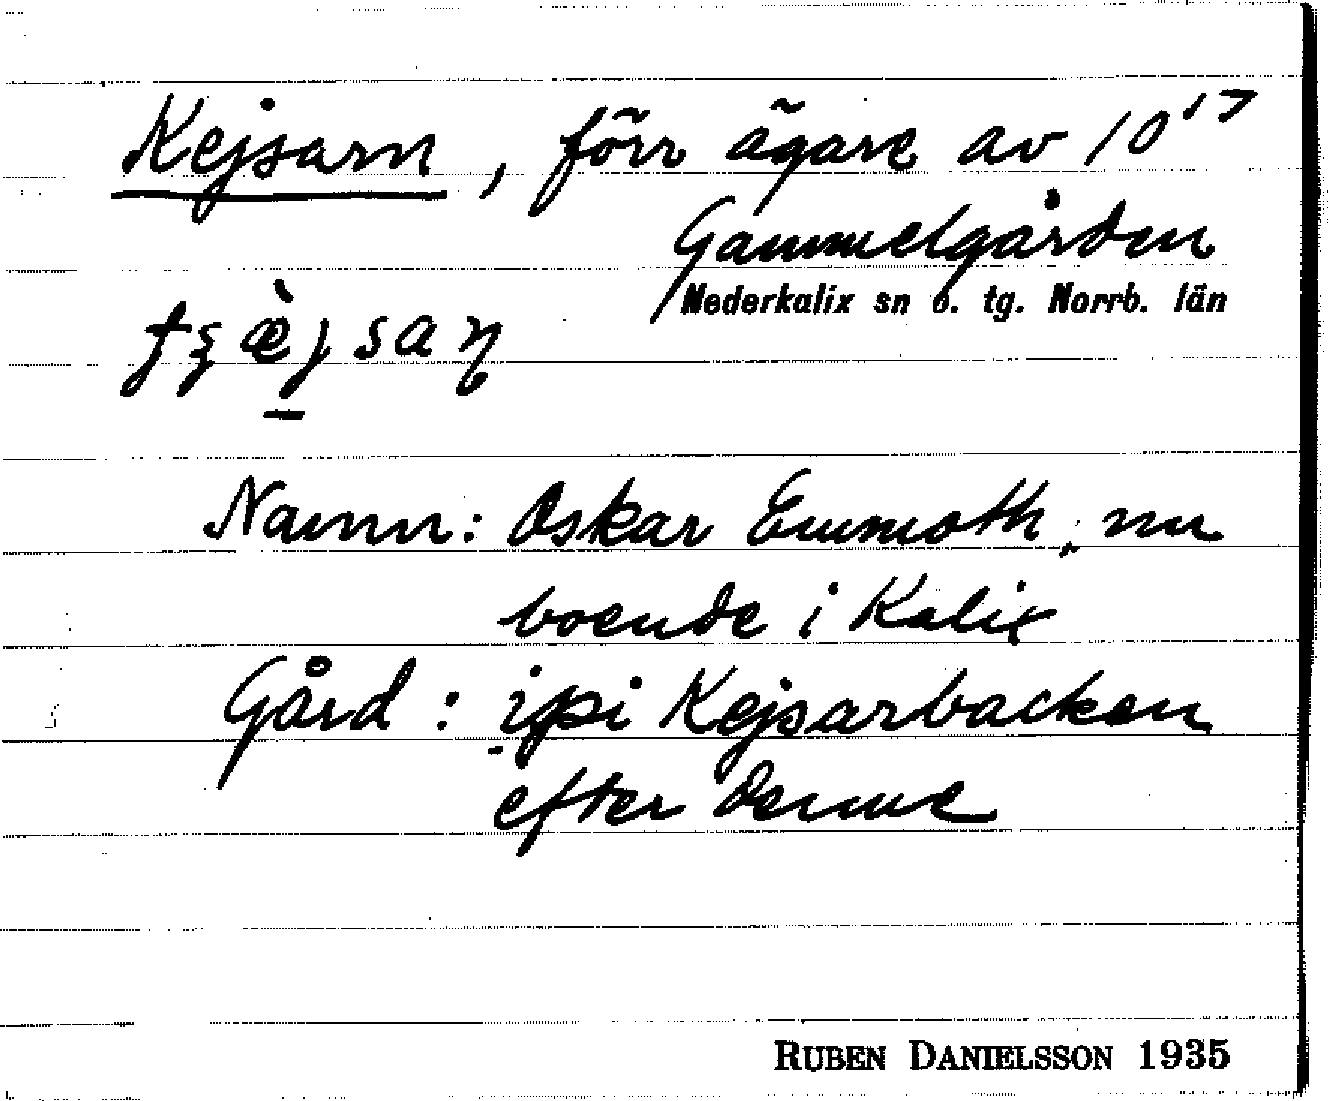 Kejsarn, förr ägare av 10¹⁷
Gammelgården
Nederkalix sn o. tg. Norrb. län
Namn: Oskar Emmoth, nu
boende i Kalix
Gård: i Kejsarbacken
efter denne
RUBEN DANIELSSON 1935